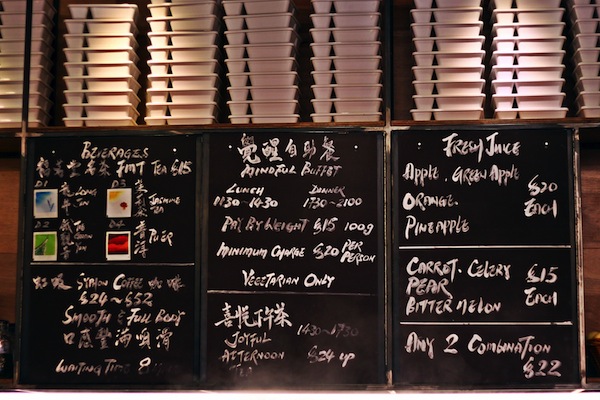 BEVERAGES
茗茶 FMT TEA $15
D1
LONG
D3
JASMINE
TEA
D2
D4
PU ER
SYPHON COFFEE 咖啡
$24~$52
SMOOTH & FULL BODY
口感豐滿順滑
WAITING TIME 8
覺醒自助餐
MINDFUL BUFFET
LUNCH DINNER
11:30~14:30 17:30~21:00
PAY BY WEIGHT $15 100g
MINIMUM CHARGE $20 PER PERSON
VEGETARIAN ONLY
喜悅下午茶
14:30~17:30
JOYFUL
AFTERNOON $24 UP
FRESH JUICE
APPLE. GREEN APPLE
ORANGE.
PINEAPPLE
$20
EACH
CARROT. CELERY
PEAR
BITTER MELON
$15
EACH
ANY 2 COMBINATION
$22